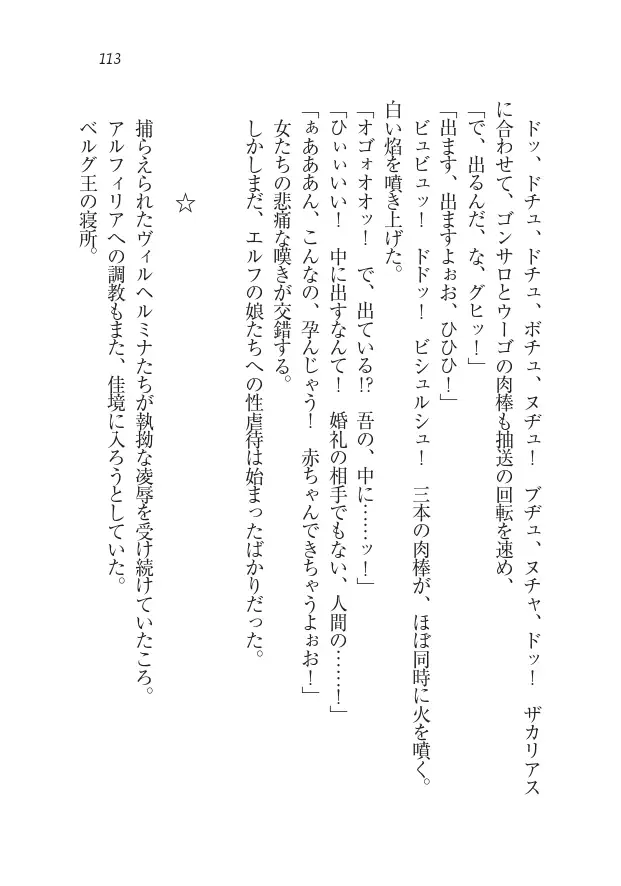 113
ドッ、ドチュ、ドチュ、ボチュ、ヌヂュ！　ブヂュ、ヌチャ、ドッ！　ザカリアス
に合わせて、ゴンサロとウーゴの肉棒も抽送の回転を速め、
「で、出るんだ、な、グヒッ！」
「出ます、出ますよぉお、ひひひ！」
ビュビュッ！　ドドッ！　ビシュルシュ！　三本の肉棒が、ほぼ同時に火を噴く。
白い焔を噴き上げた。
「オゴォオオッ！　で、出ている!?　吾の、中に……ッ！」
「ひぃぃいい！　中に出すなんて！　婚礼の相手でもない、人間の……！」
「ぁあああん、こんなの、孕んじゃう！　赤ちゃんできちゃうよぉお！」
女たちの悲痛な嘆きが交錯する。
しかしまだ、エルフの娘たちへの性虐待は始まったばかりだった。
☆
捕らえられたヴィルヘルミナたちが執拗な凌辱を受け続けていたころ。
アルフィリアへの調教もまた、佳境に入ろうとしていた。
ベルグ王の寝所。